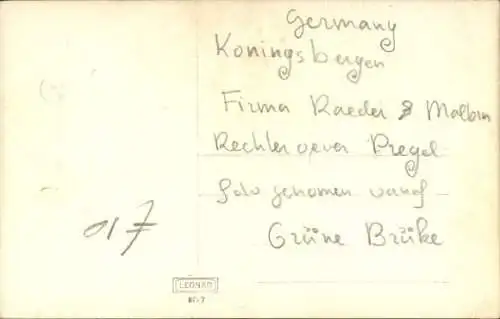 Germany
Konings bergen
Firma Raeder & Malbra
Rechter oever Pregel
foto genomen vanaf
Grüne Brüke
017
LEONAR